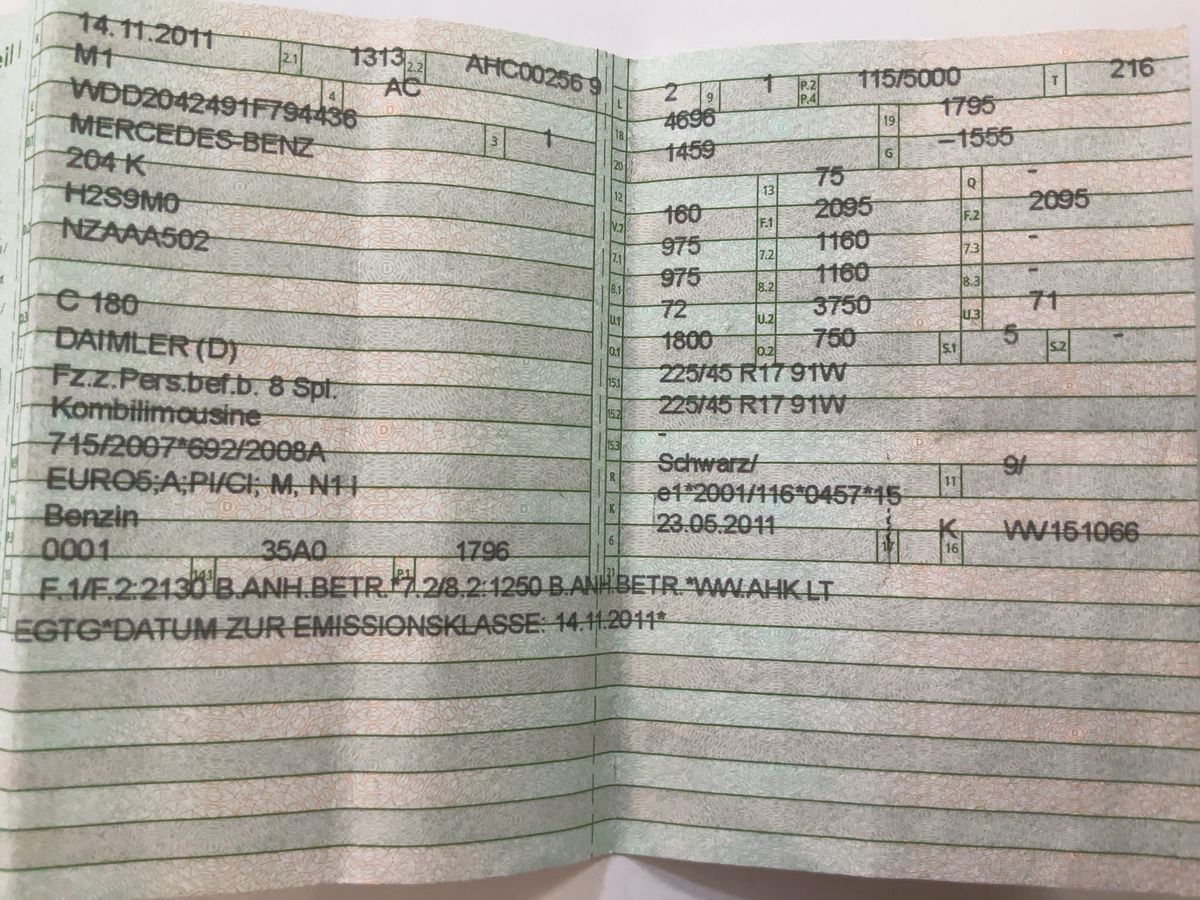 eil I
14.11.2011 2.1 1313 2.2 AHC00256 9
M1 4 AC
WDD2042491F794436 3 1
MERCEDES-BENZ
204 K
H2S9M0
NZAAA502
C 180
DAIMLER (D)
Fz.z.Pers.bef.b. 8 Spl.
Kombilimousine
715/2007*692/2008A
EURO5;A;PI/CI; M, N1 I
Benzin
0001 14.1 35A0 P.1 1796
L 2 9 1 P.2 P.4 115/5000 T 216
18 4696 19 1795
20 1459 G –1555
12 13 75 Q -
V.7 160 F.1 2095 F.2 2095
7.1 975 7.2 1160 7.3 -
8.1 975 8.2 1160 8.3 -
U.1 72 U.2 3750 U.3 71
O.1 1800 O.2 750 S.1 5 S.2 -
15.1 225/45 R17 91W
15.2 225/45 R17 91W
15.3 -
R Schwarz/ 11 9/
K e1*2001/116*0457*15
6 23.05.2011 17 K 16 VW151066
21
F.1/F.2:2130 B.ANH.BETR.*7.2/8.2:1250 B.ANH.BETR.*WW.AHK LT
EGTG*DATUM ZUR EMISSIONSKLASSE: 14.11.2011*